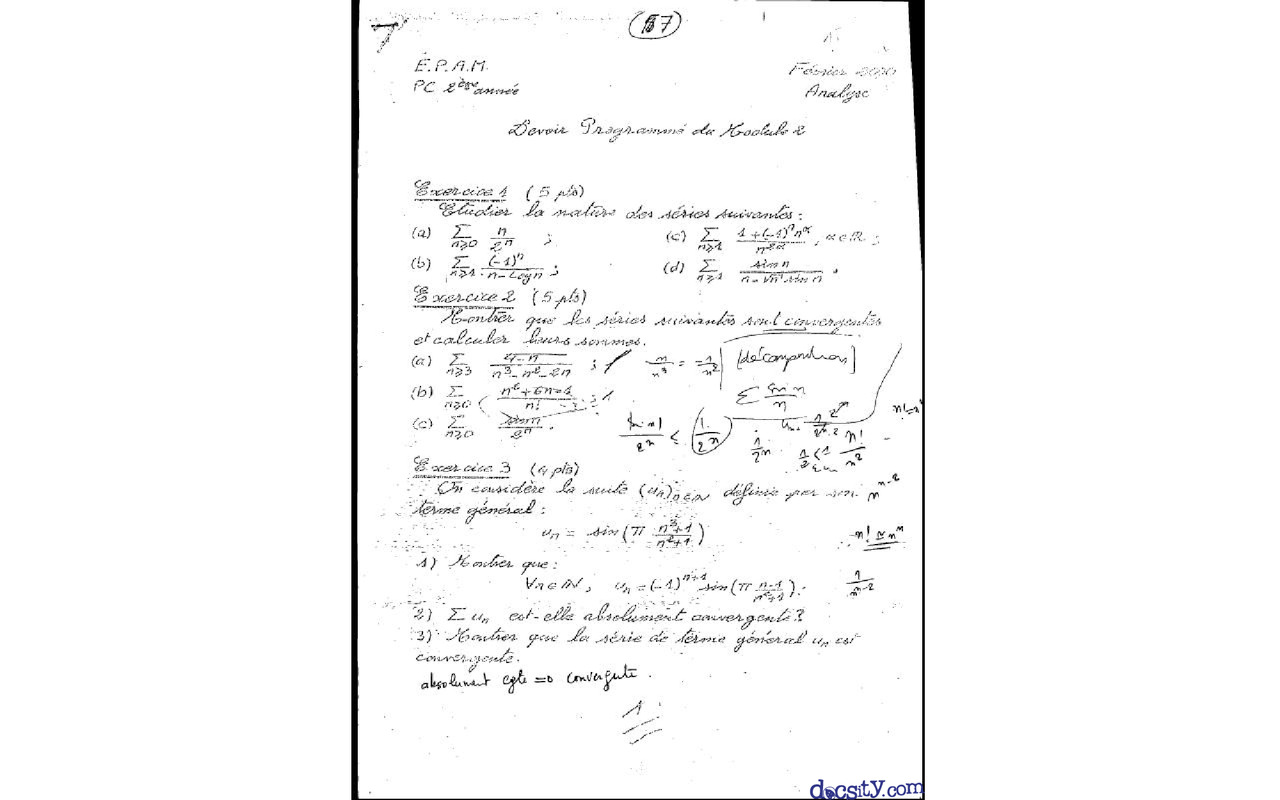 (57)
É.P.A.M.
PC 2ème année
Février 2010
Analyse
Devoir Programmé du Module 2
Exercice 1 (5 pts)
Etudier la nature des séries suivantes :
(a) ∑ n≥0 n/2^n ;
(c) ∑ n≥1 (1+(-1)^n n^α)/n^(2α), α∈ℝ ;
(b) ∑ n≥1 (-1)^n/(n-Log n) ;
(d) ∑ n≥1 sin n/(n-√n sin n) ;
Exercice 2 (5 pts)
Montrer que les séries suivantes sont convergentes
et calculer leurs sommes.
(a) ∑ n≥3 (4-n)/(n^3-n^2-2n) ;
n/n^3 = -1/n^2
∑ sin n/n
(b) ∑ n≥0 /n! ;
(c) ∑ n≥0 sin n/2^n .
|sin n|/2^n ≤ (1/2^n)
Exercice 3 (4 pts)
On considère la suite (u_n)n∈ℕ définie par son
n^(n-2)
terme général :
u_n = sin(π (n^3+1)/(n^2+1))
n! ≃ n^n
1) Montrer que :
∀n∈ℕ, u_n = (-1)^(n+1) sin(π (n-1)/(n^2+1)).
2) ∑ u_n est-elle absolument convergente ?
3) Montrer que la série de terme général u_n est
convergente.
absolument cgte => convergente.
docsity.com